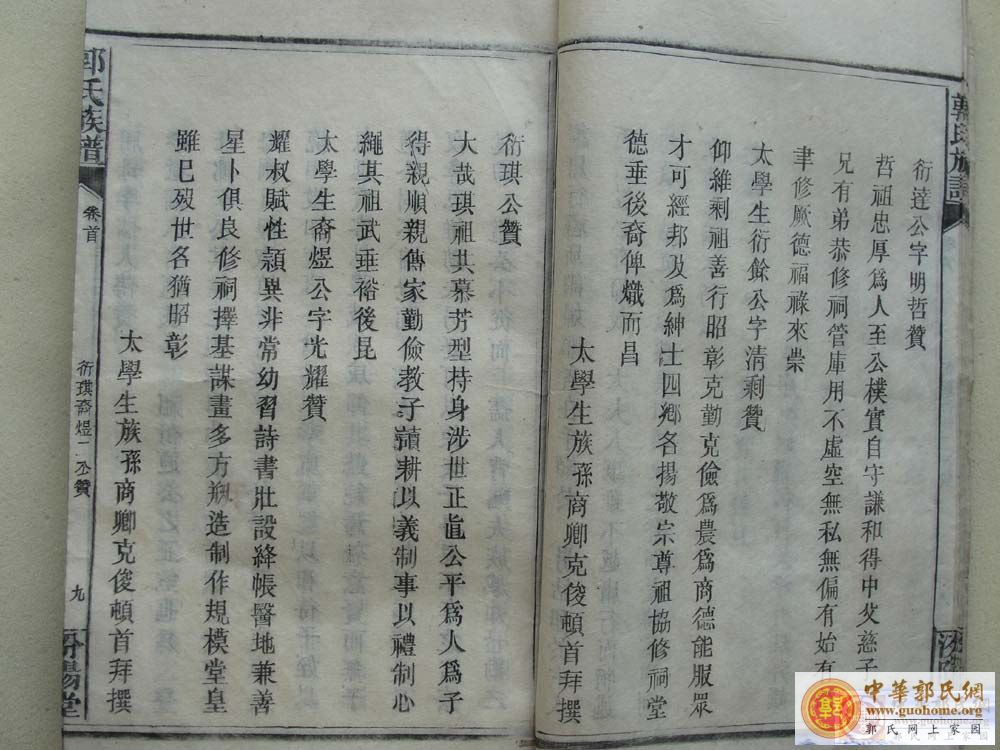 郭氏族譜
衍達公字明哲贊
哲祖忠厚爲人至公樸實自守謙和得中父慈子
兄有弟恭修祠管庫用不虛空無私無偏有始有
聿修厥德福祿來崇
太學生衍餘公字清剩贊
仰維剩祖善行昭彰克勤克儉爲農爲商德能服眾
才可經邦及爲紳士四鄉名揚敬宗尊祖協修祠堂
德垂後裔俾熾而昌
太學生族孫商卿克俊頓首拜撰
衍琪公贊
大哉琪祖共慕芳型持身涉世正直公平爲人爲子
得親順親傳家勤儉教子讀耕以義制事以禮制心
繩其祖武垂裕後昆
太學生裔煜公字光耀贊
耀叔賦性頴異非常幼習詩書壯設絳帳醫地兼善
星卜俱良修祠擇基謀畫多方瓶造制作規模堂皇
雖已歿世名猶昭彰
太學生族孫商卿克俊頓首拜撰
郭氏族譜
卷首
衍琪裔煜二公贊
九
汾陽堂
中華郭氏網
www.guohome.org
郭氏网上家园